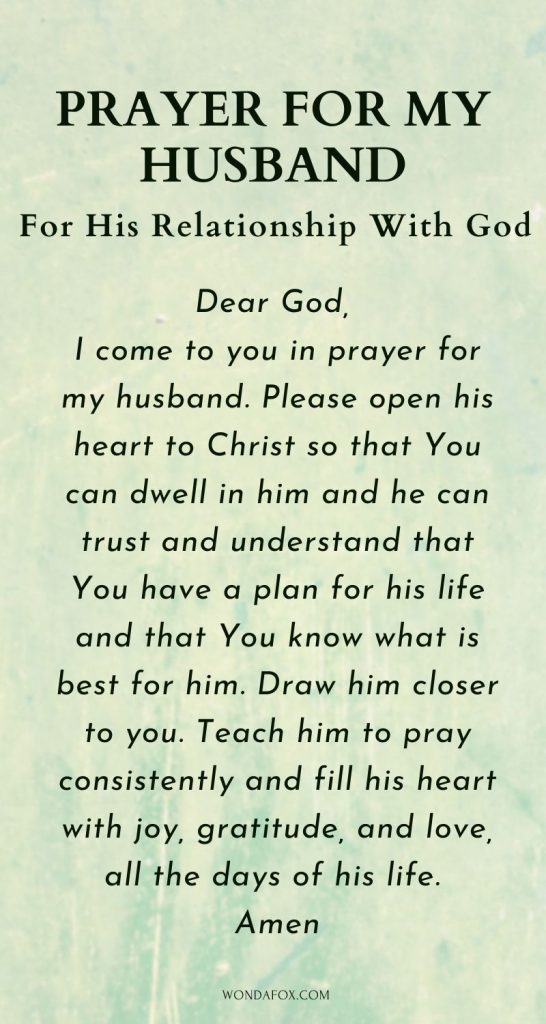 PRAYER FOR MY
HUSBAND
For His Relationship With God
Dear God,
I come to you in prayer for
my husband. Please open his
heart to Christ so that You
can dwell in him and he can
trust and understand that
You have a plan for his life
and that You know what is
best for him. Draw him closer
to you. Teach him to pray
consistently and fill his heart
with joy, gratitude, and love,
all the days of his life.
Amen
WONDAFOX.COM